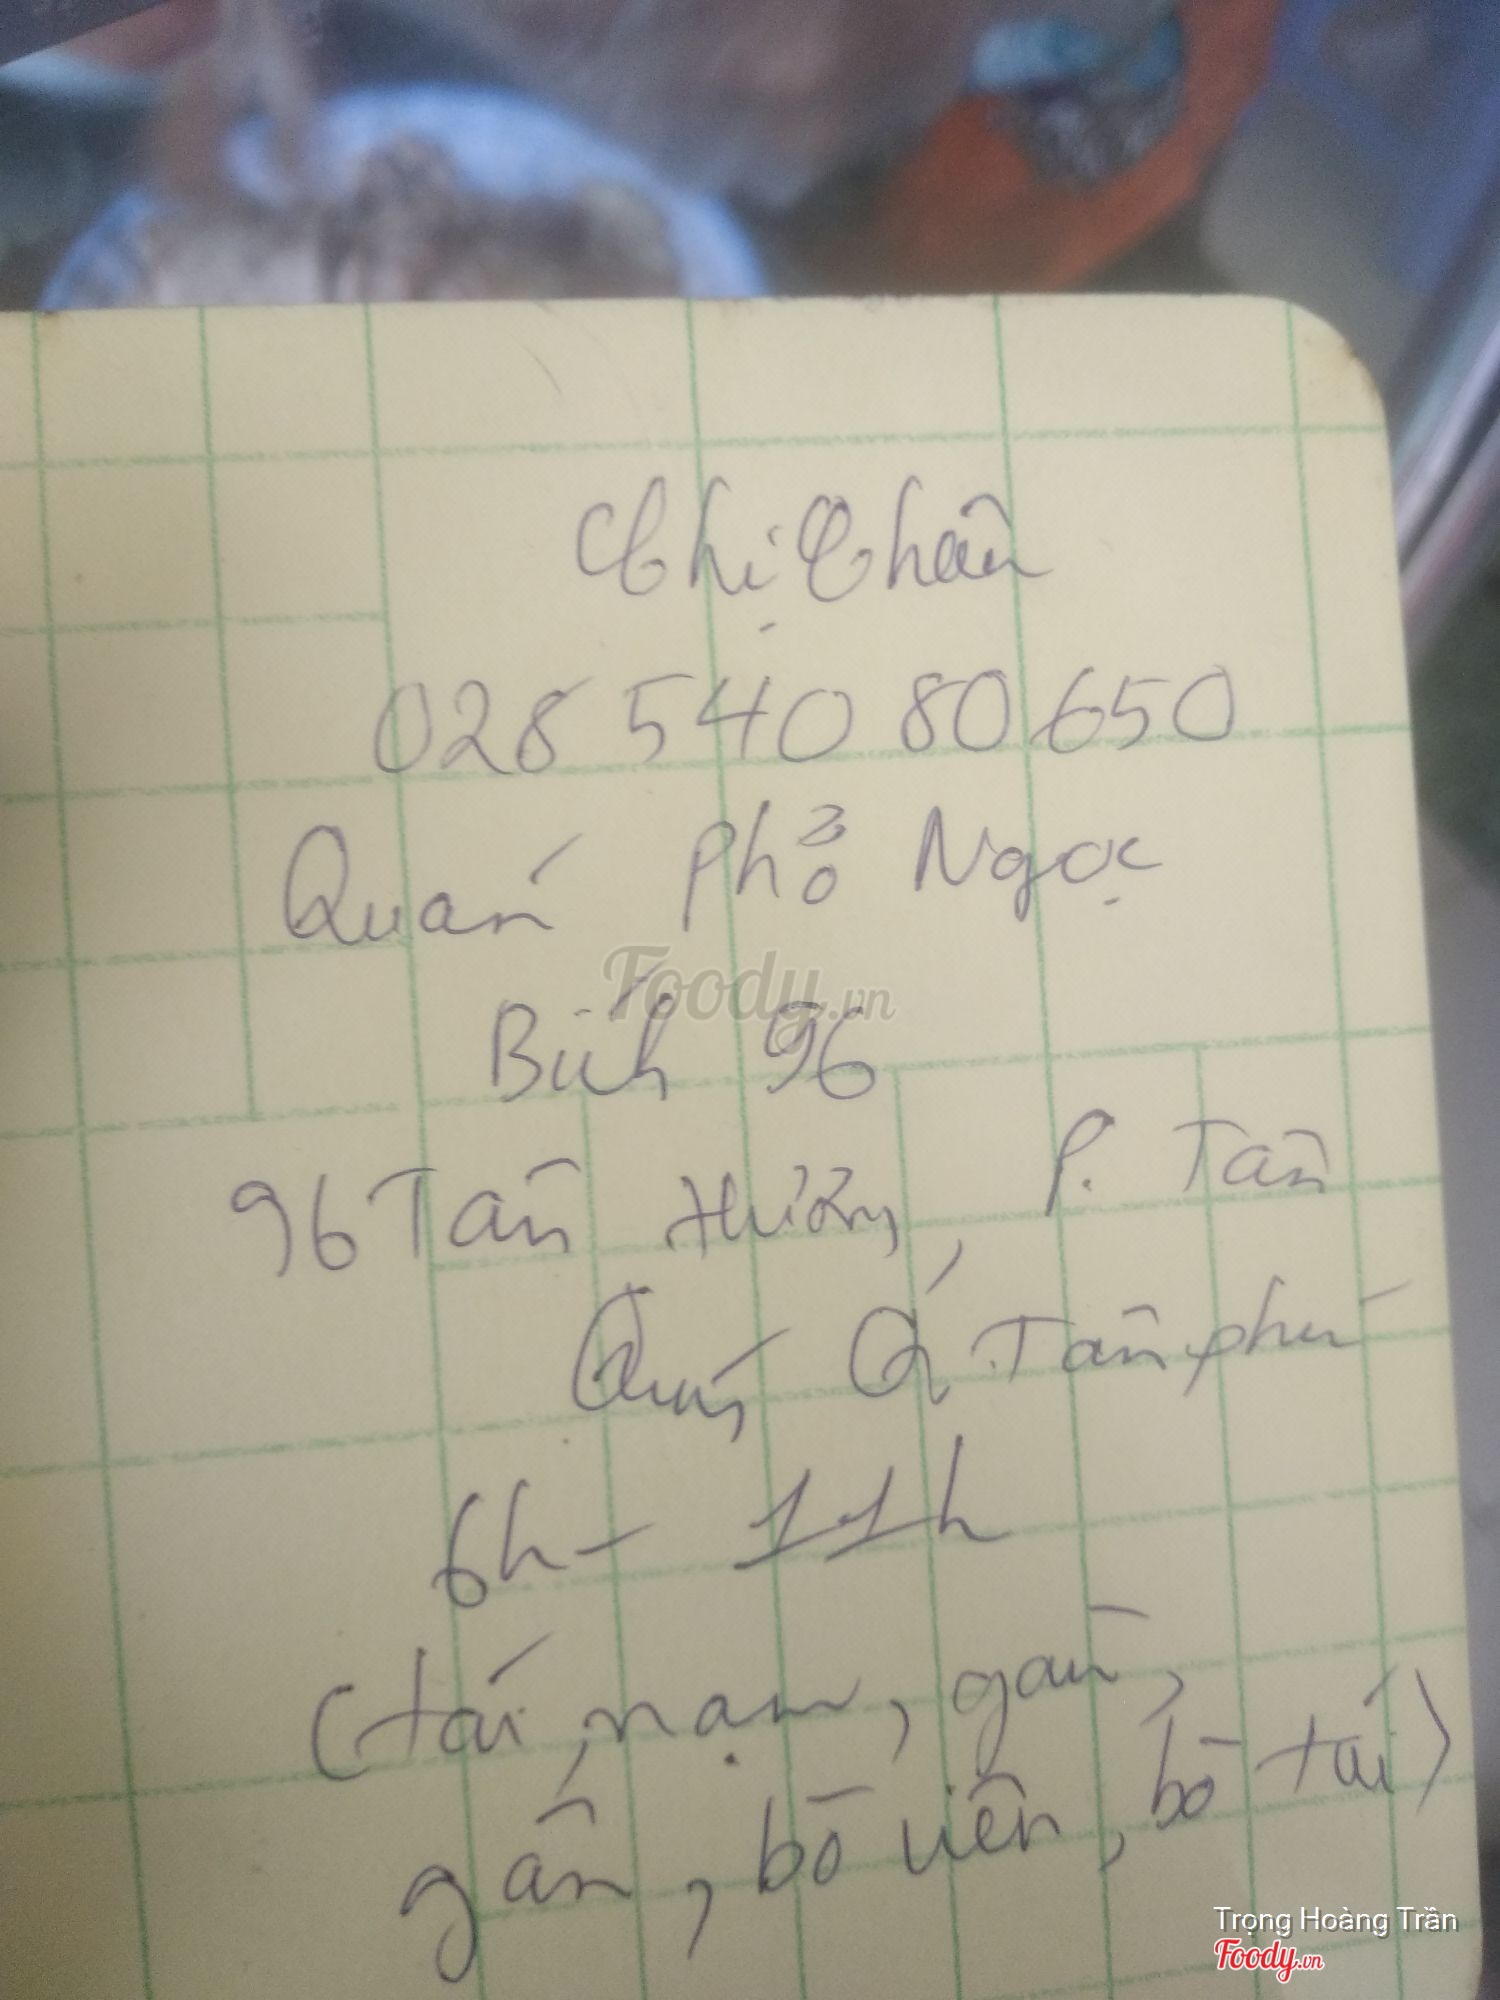 Chị Chân
028 540 80650
Quán Phở Ngọc
Foody.vn
Bích 96
96 Tân Hương, P. Tân
Quý, Q. Tân phú
6h - 11h
(tái, nạm, gầu,
gân, bò viên, bò tái)
Trọng Hoàng Trần
Foody.vn